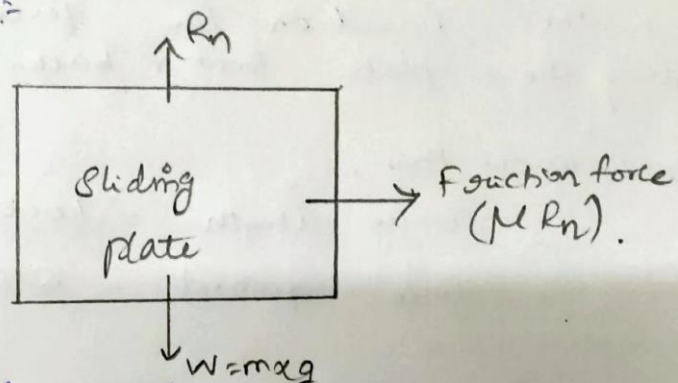 :-
Rn
Sliding
plate
Friction force
(μ Rn).
W=mxg